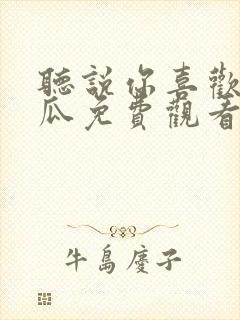 聽說你喜歡
瓜免費觀看
牛島慶子